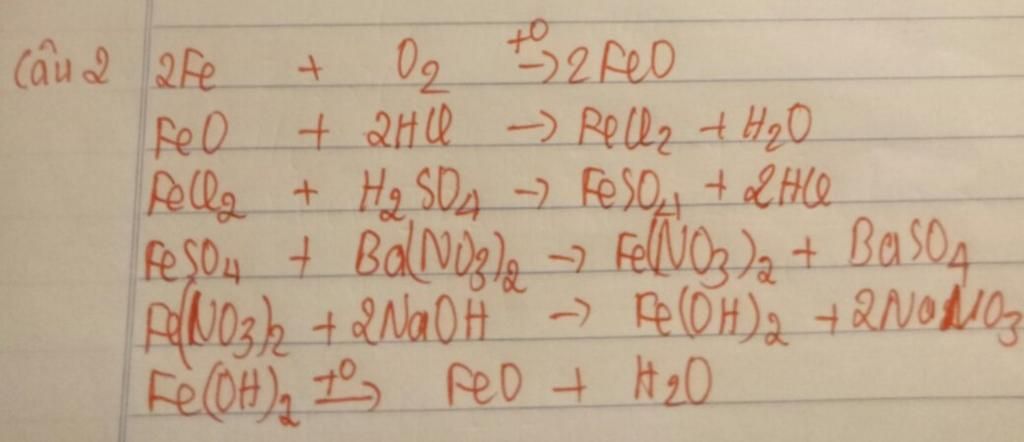 Câu 2 2Fe + O₂ →(t⁰) 2FeO
FeO + 2HCl → FeCl₂ + H₂O
FeCl₂ + H₂SO₄ → FeSO₄ + 2HCl
FeSO₄ + Ba(NO₃)₂ → Fe(NO₃)₂ + BaSO₄
Fe(NO₃)₂ + 2NaOH → Fe(OH)₂ + 2NaNO₃
Fe(OH)₂ →(t⁰) FeO + H₂O